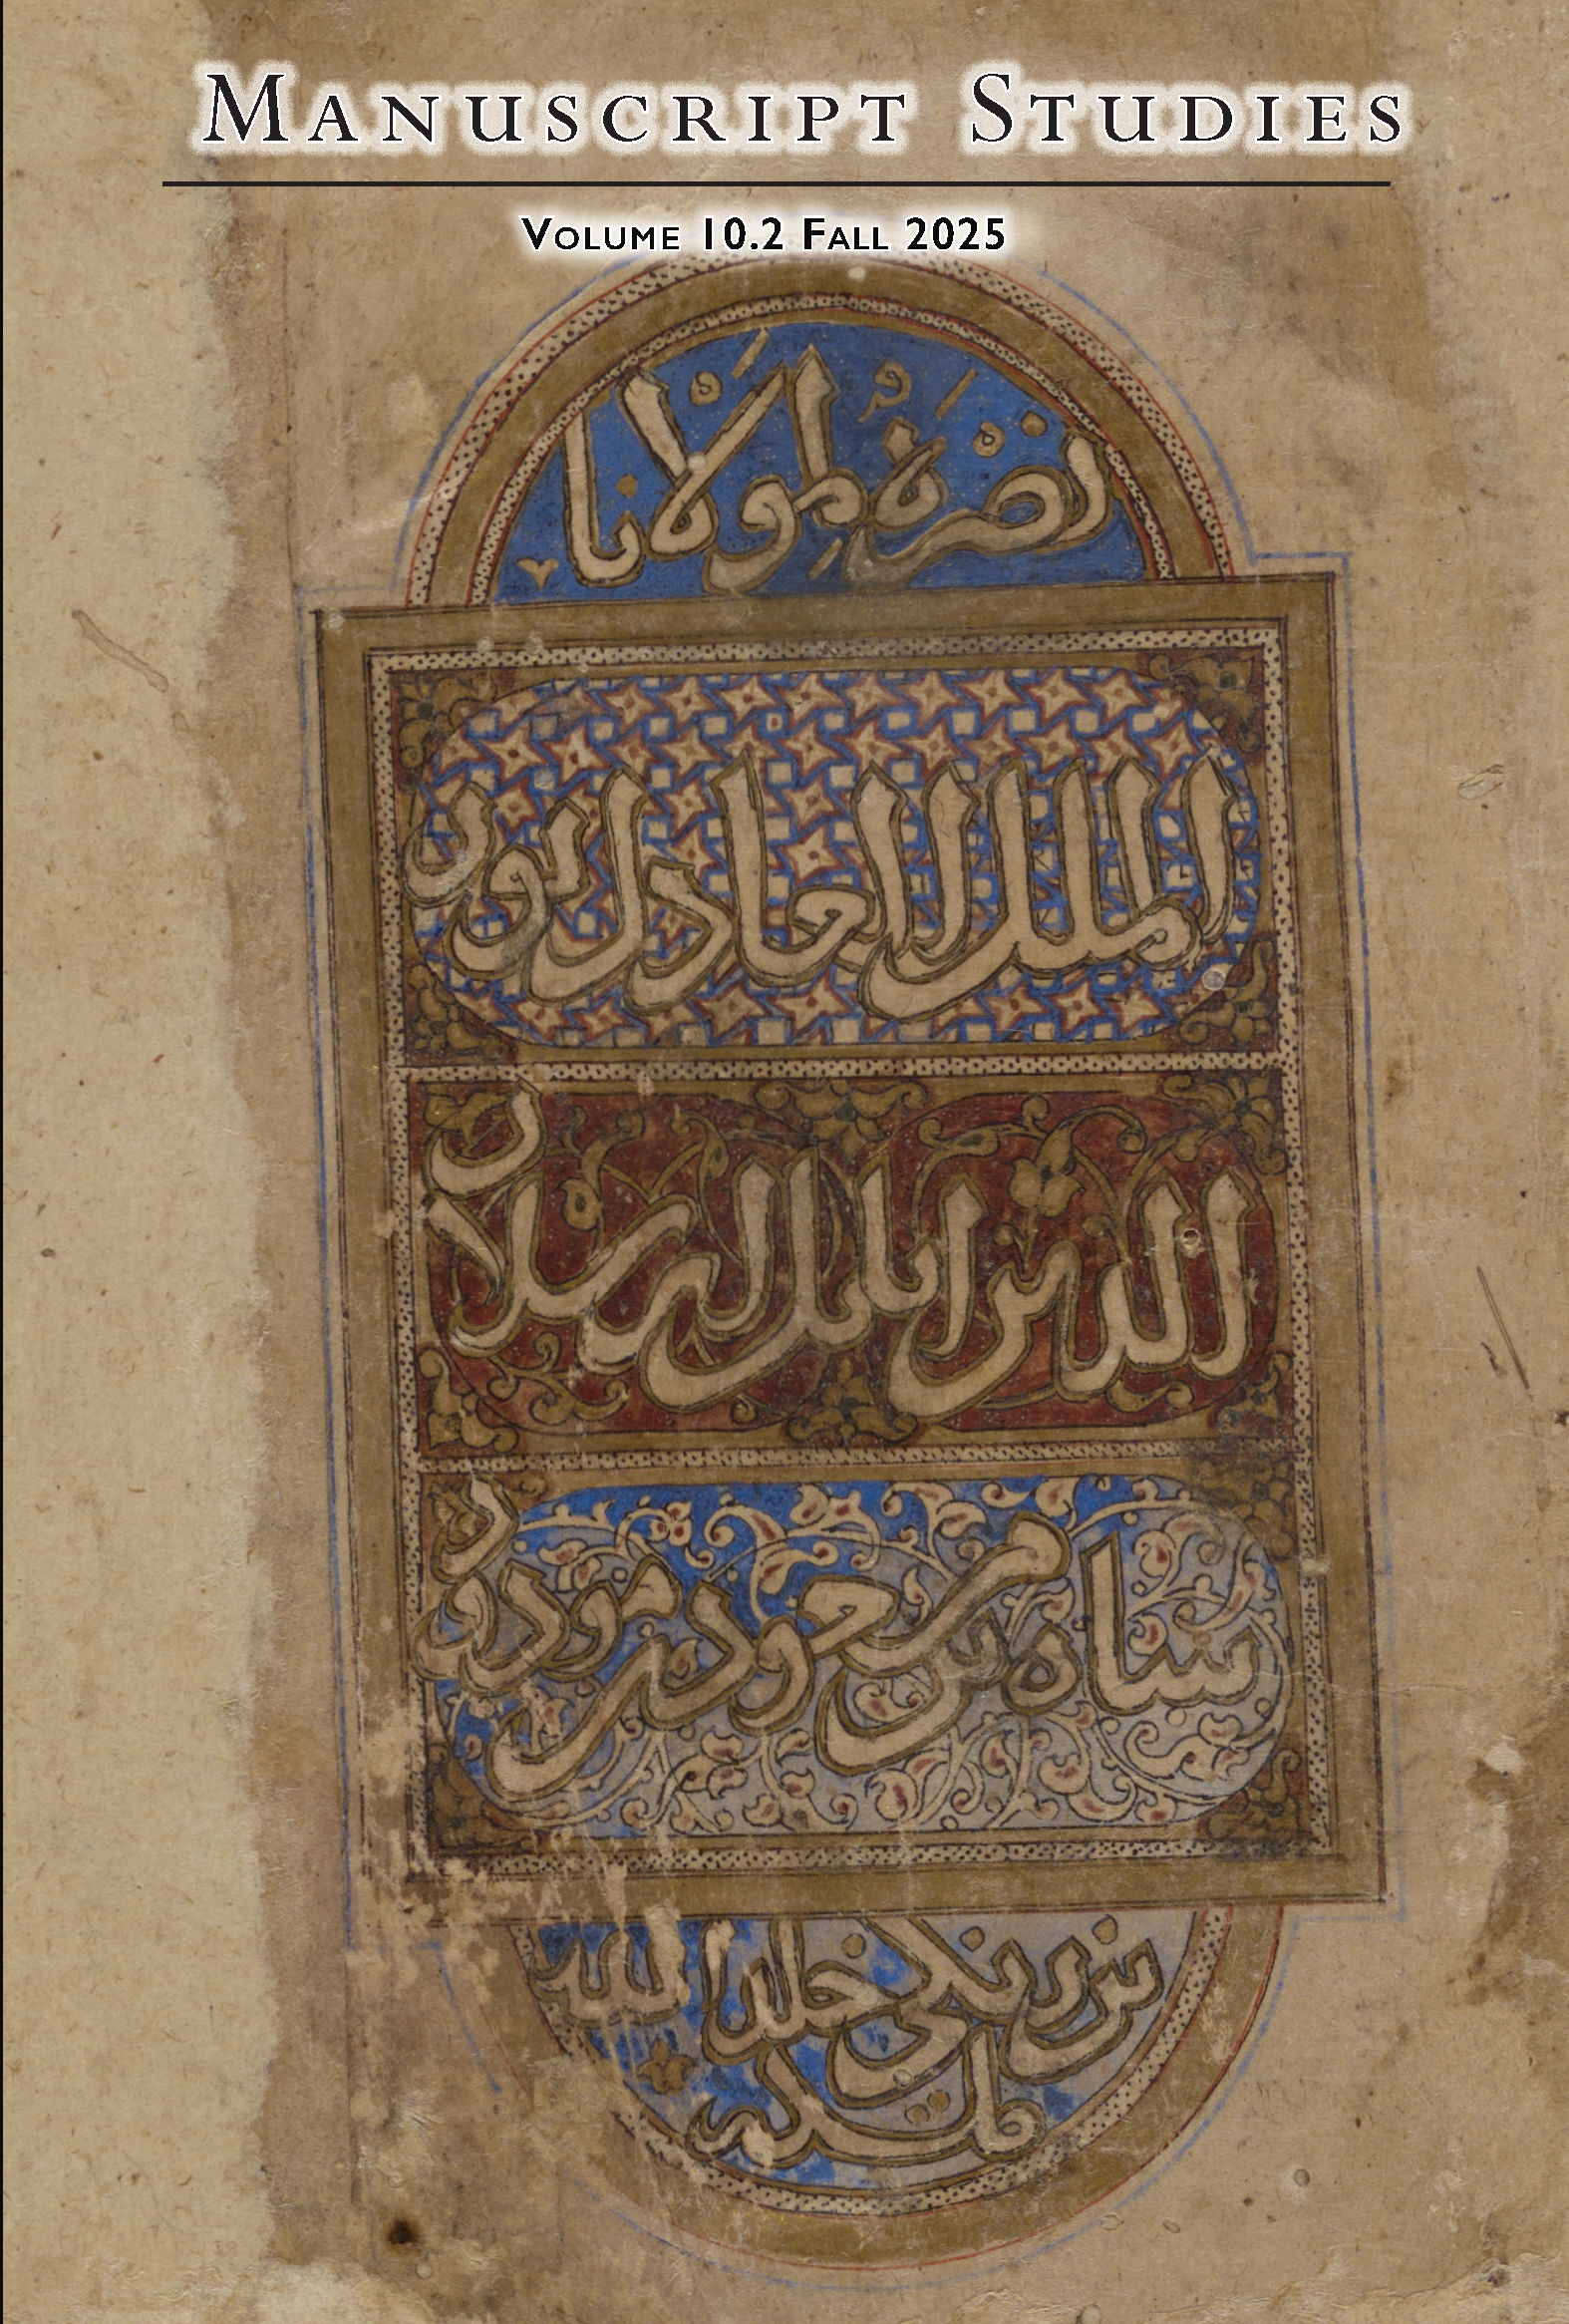 MANUSCRIPT STUDIES
VOLUME 10.2 FALL 2025
نصرة لمولانا
الملك العادل نور
الدين اتابك ارسلان
شاه بن مسعود بن مودود
بن زنكي خلد الله
ملكه